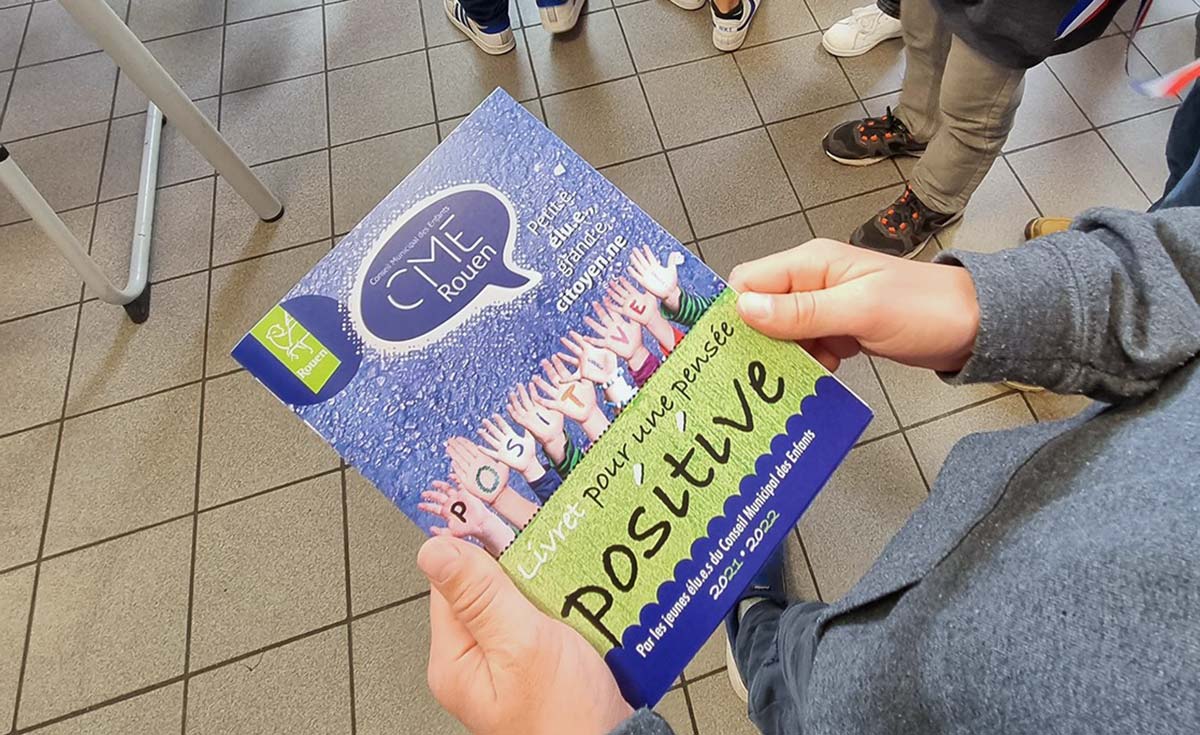 Conseil Municipal des Enfants
CME
Rouen
Petit·e
élu·e,,
grand·e,
citoyen.ne
Rouen
POSITIVE
Livret pour une pensée
positive
Par les jeunes élu.e.s du Conseil Municipal des Enfants
2021 • 2022